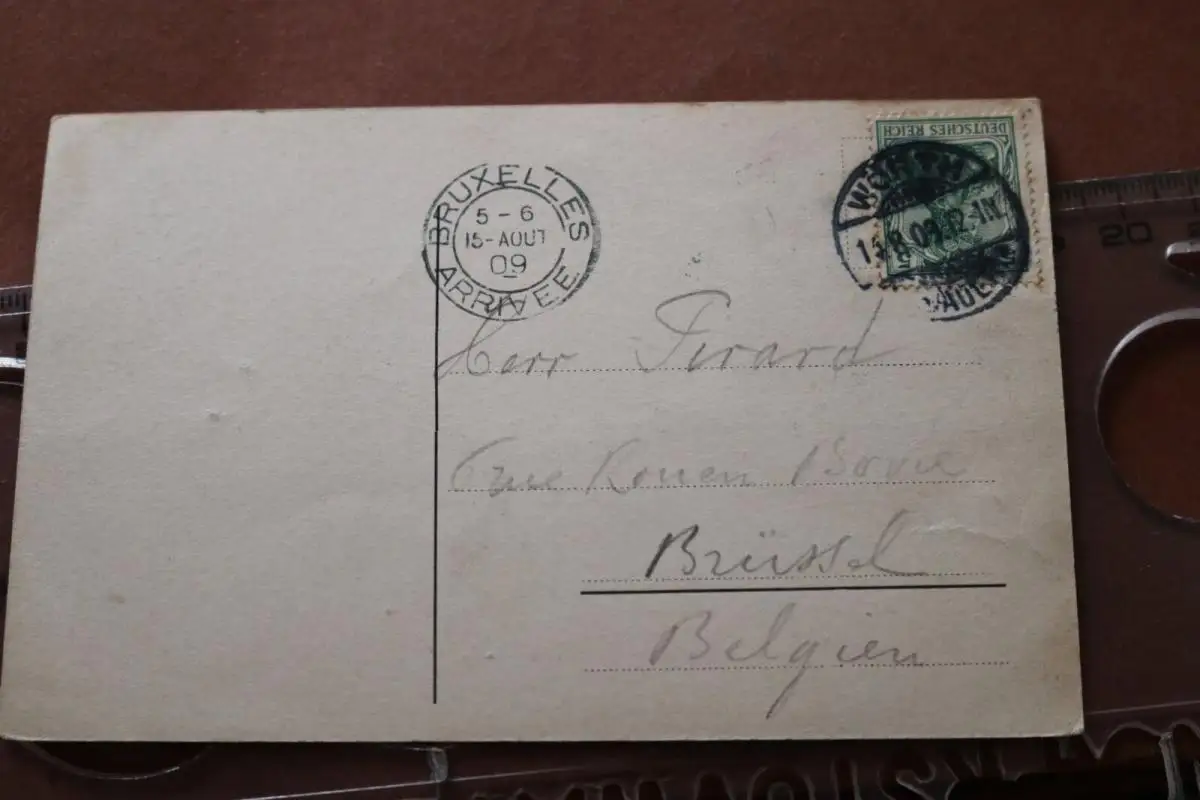 DEUTSCHES REICH
WÖRTH
8.09.12-1N.
BRUXELLES
5-6
15-AOUT
09
ARRIVEE
Herr Pirard
Rouen Bovie
Brüssel
Belgien
20